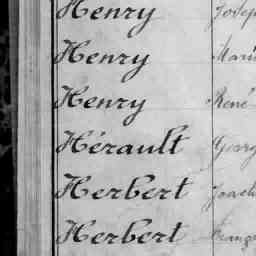 Henry Josep
Henry Mari
Henry René
Hérault Georg
Herbert Joach
Herbert